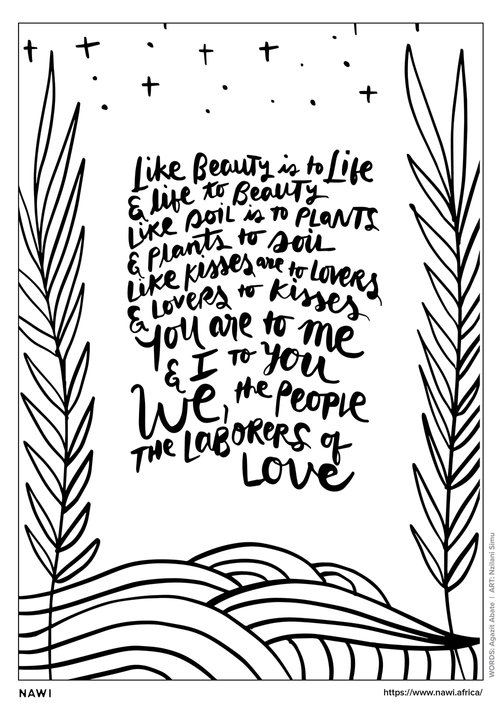 Like Beauty is to Life
& life to Beauty
Like soil is to PLANTS
& Plants to soil
Like Kisses are to LOVERS
& LOVERS to Kisses
You are to me
& I to You
We, the PEOPLE
THE LABORERS of
LOVE
WORDS: Agazit Abate | ART: Nzilani Simu
NAWI
https://www.nawi.africa/